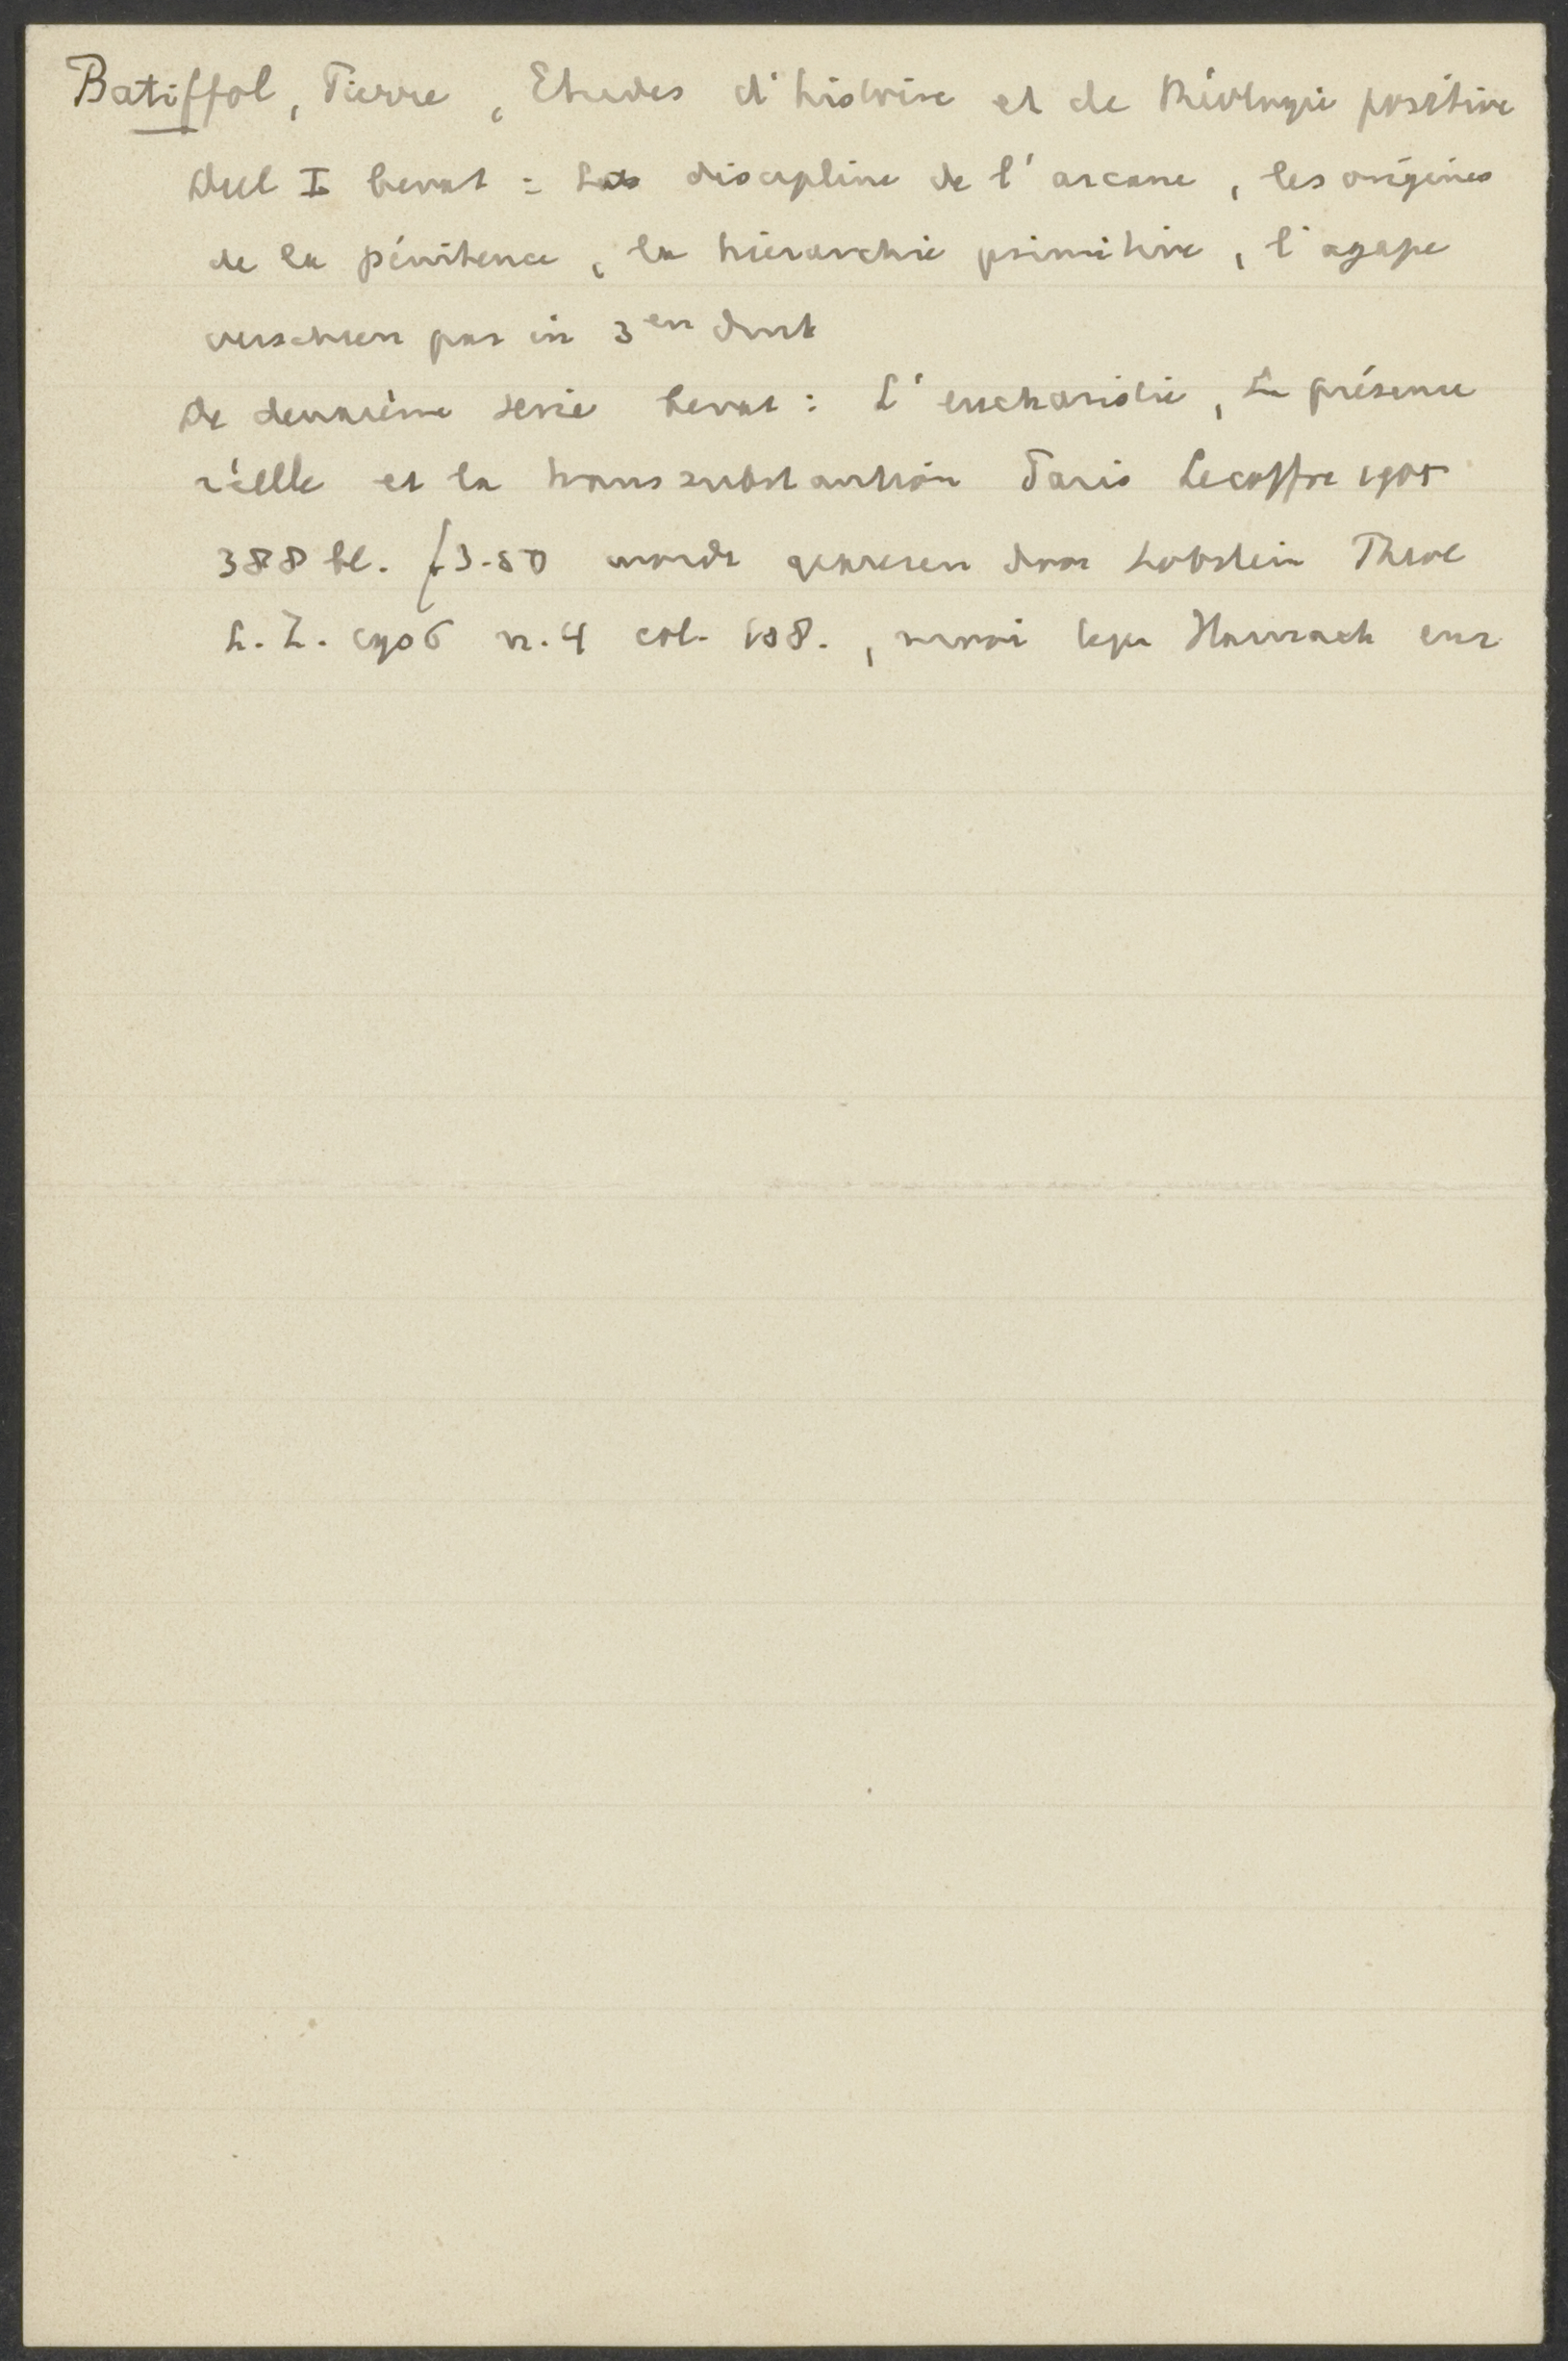 Batiffol, Pierre, Etudes d'histoire et de théologie positive
Deel I bevat: La discipline de l'arcane, les origines
de la pénitence, la hiérarchie primitive, l'agape
verscheen pas in 3en druk
De deuxième serie bevat: L'eucharistie, La présence
réelle et la transsubstantiation Paris Lecoffre 1905
388 bl. f3.50 wordt geprezen door Lobstein Theol
L. Z. 1906 nr. 4 col. 108., Harnack enz